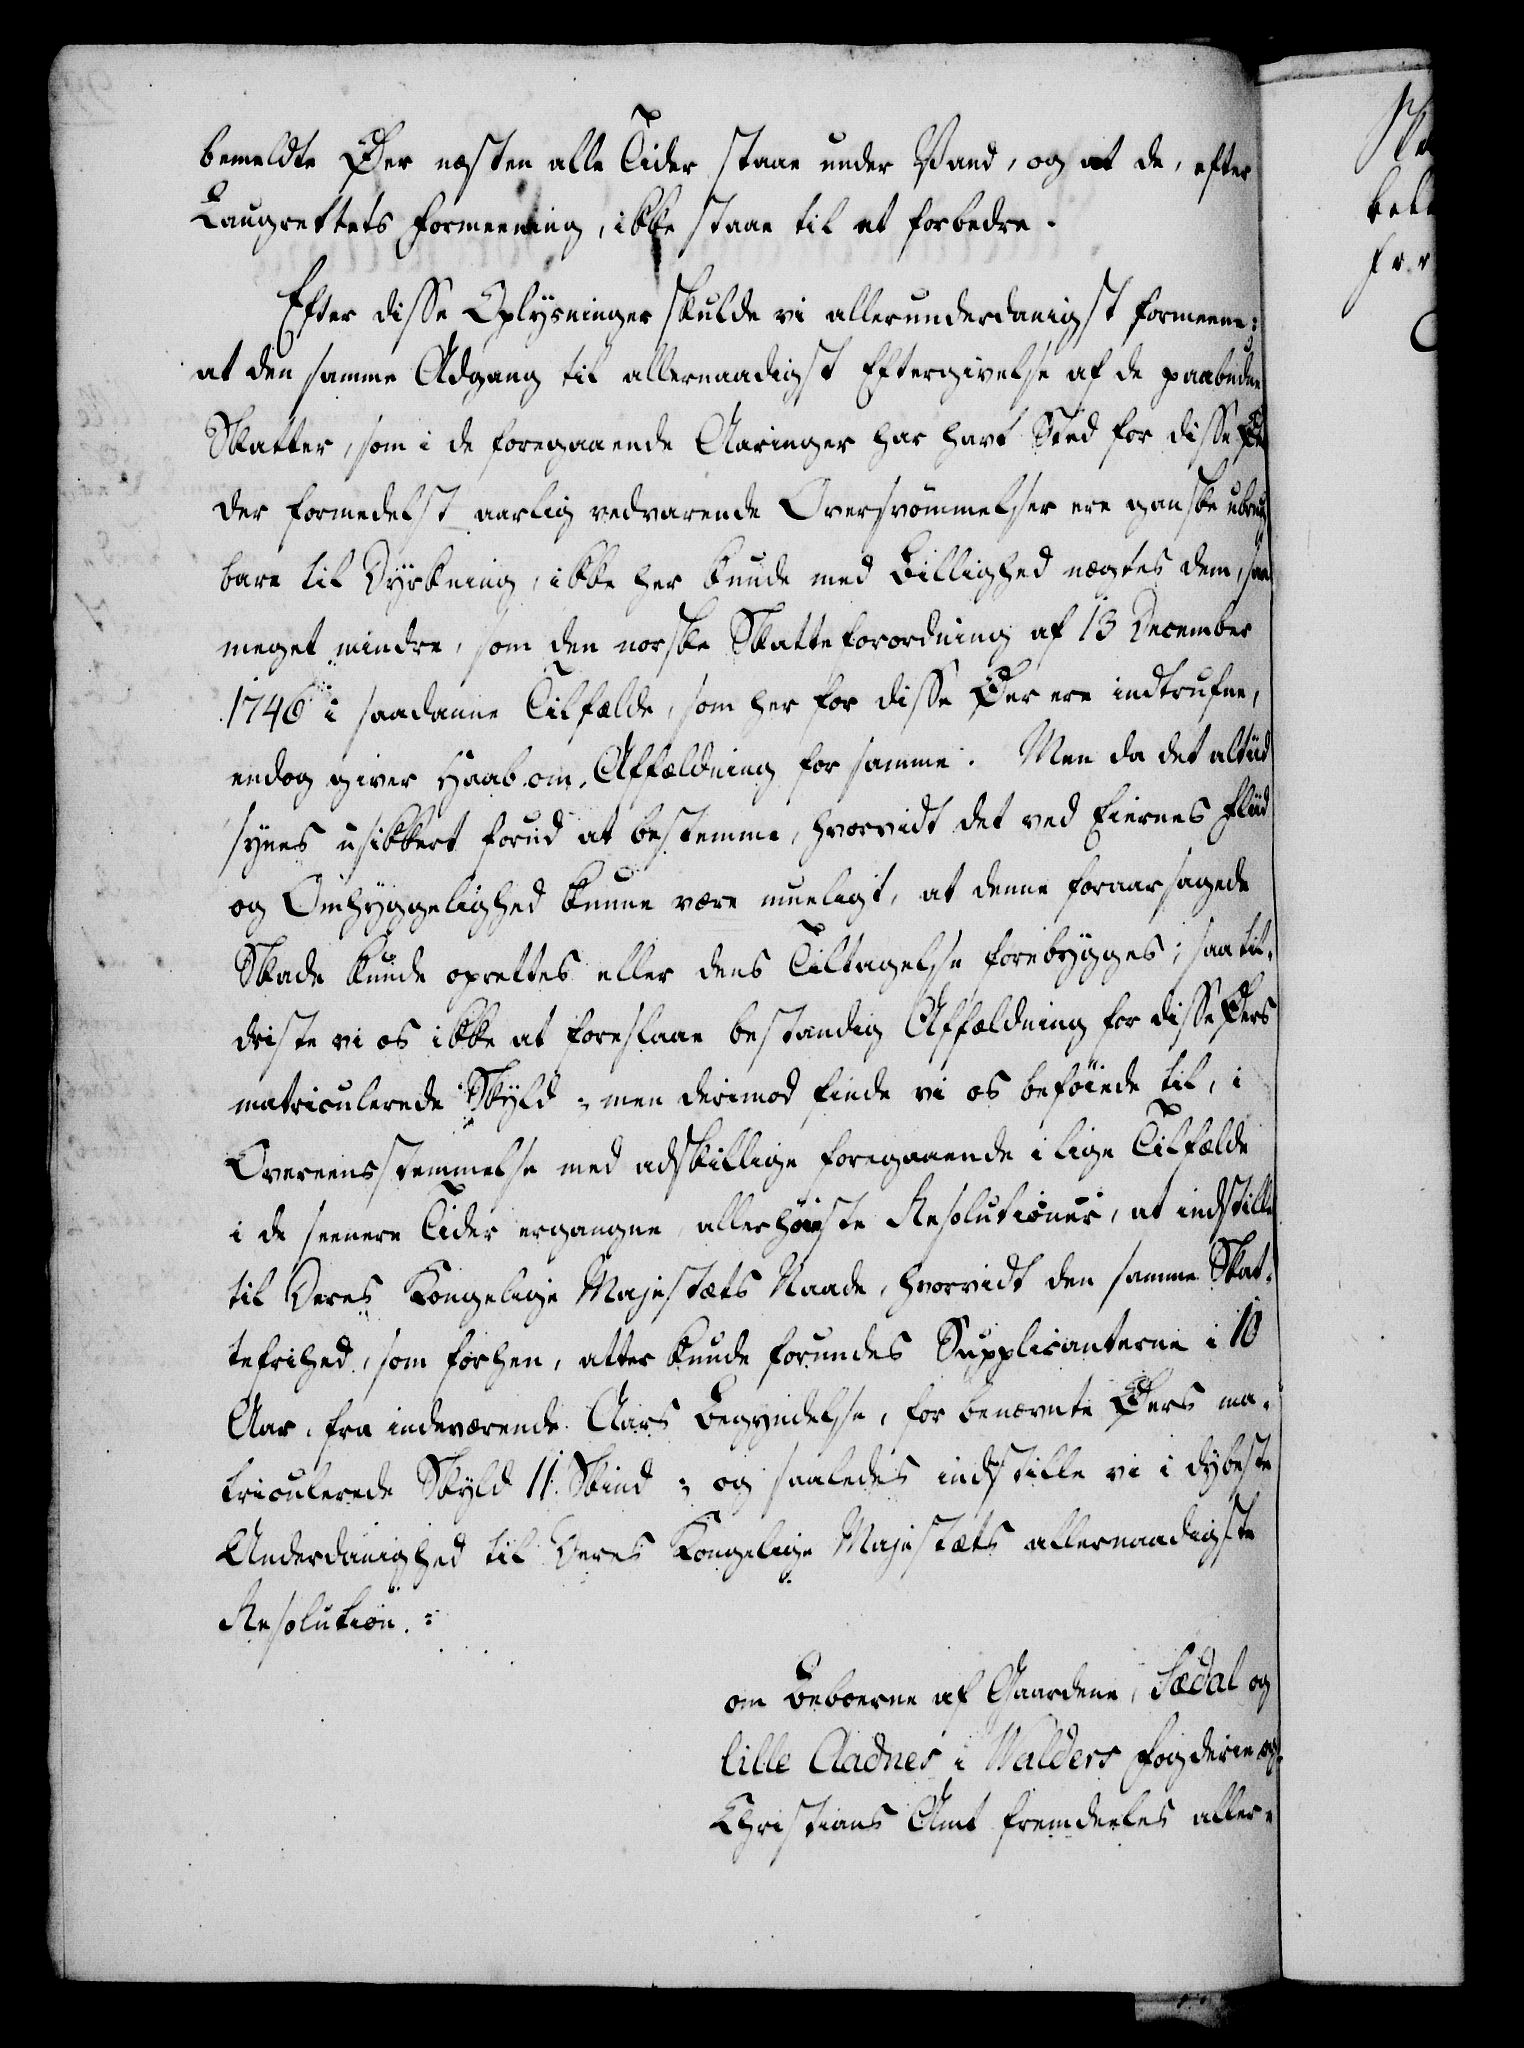 bemeldte Øer næsten alle Tider staae under Vand, og at de, efter
Laugrettets Formeening, ikke staae til at forbedre.
Efter disse Oplysninger skulde vi allerunderdanigst formeene:
at den samme Adgang til allernaadigst Eftergivelse af de paabudne
Skatter, som i de foregaaende Aaringer har havt Sted for disse Øer
der formedelst aarlig vedvarende Oversvømmelser ere ganske ubrug
bare til Dyrkning, ikke her kunde med Billighed nægtes dem, saa
meget mindre, som den norske Skatteforordning af 13 December
1746 i saadanne Tilfælde, som her for disse Øer ere indtrufne,
endog giver Haab om Affældning for samme. Men da det altiid
synes usikkert forud at bestemme, hvorvidt det ved Eiernes Fliid
og Omhyggelighed kunne være mueligt, at denne foraarsagede
Skade kunde oprettes eller dens Tiltagelse forebygges; saa til-
driste vi os ikke at foreslaae bestandig Affældning for disse Øers
matriculerede Skyld; men derimod finde vi os beføiede til, i
Overeensstemmelse med adskillige foregaaende i lige Tilfælde
i de seenere Tider ergangne allerhøieste Resolutioner, at indstille
til Deres Kongelige Majestæts Naade, hvorvidt den samme Skat-
tefrihed, som forhen, atter kunde forundes Supplicanterne i 10
Aar, fra indeværende Aars Begyndelse, for benævnte Øers ma-
triculerede Skyld 11 Skind; og saaledes indstille vi i dybeste
Underdanighed til Deres Kongelige Majestæts allernaadigste
Resolution.
om Beboerne af Gaardene, Sædal og
lille Aadnes i Walders Fogderie og
Christians Amt fremdeeles aller-